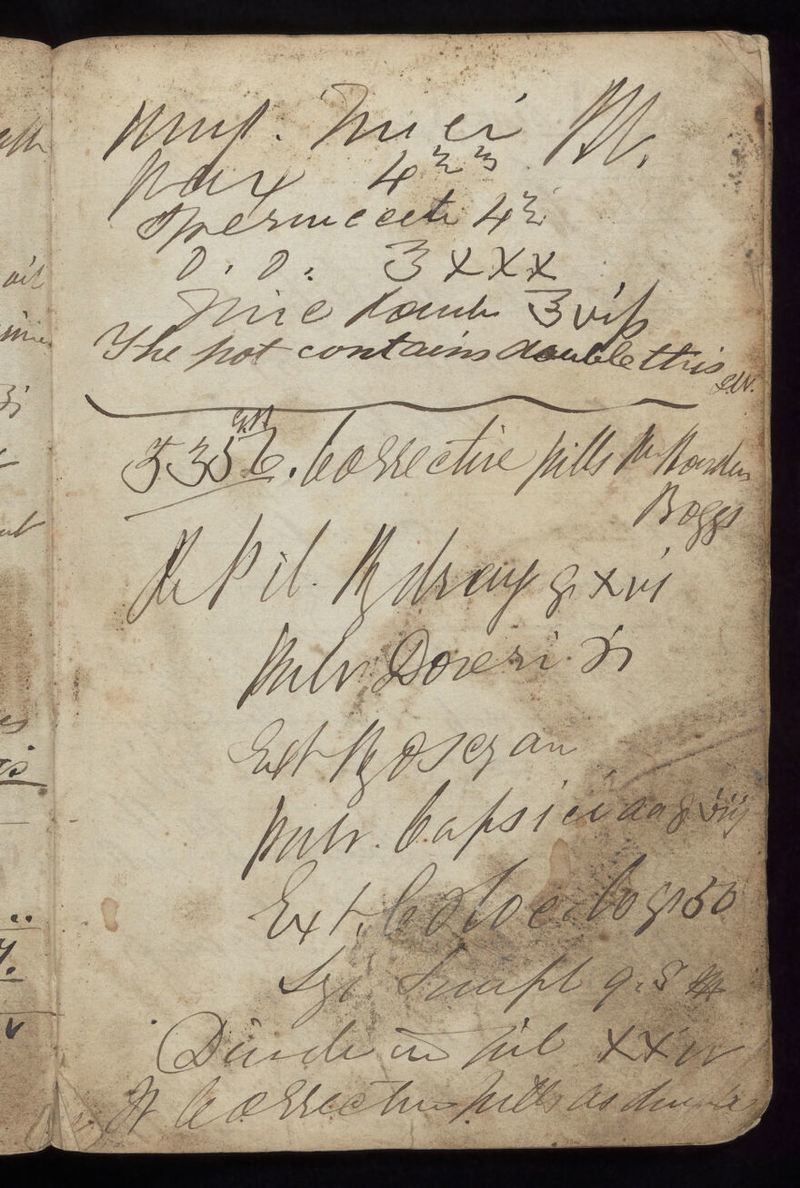 Ung. Zinci Rx.
Wax 4℥
Spermaceti 4℥
O. O. ℥xxx
Zinc ℥vifs
The pot contains double this
5356. Corrective pills Mr
Boggs
Rx Pil. Hydrarg gr xvi
Pulv Doveri ℈i
Ext Hyoscyam
Pulv. Capsici aa gr viij
Ext. Coloc. Co gr 50
Syr Simpl q. s
Divide in pil xxiv
Corrective pills as